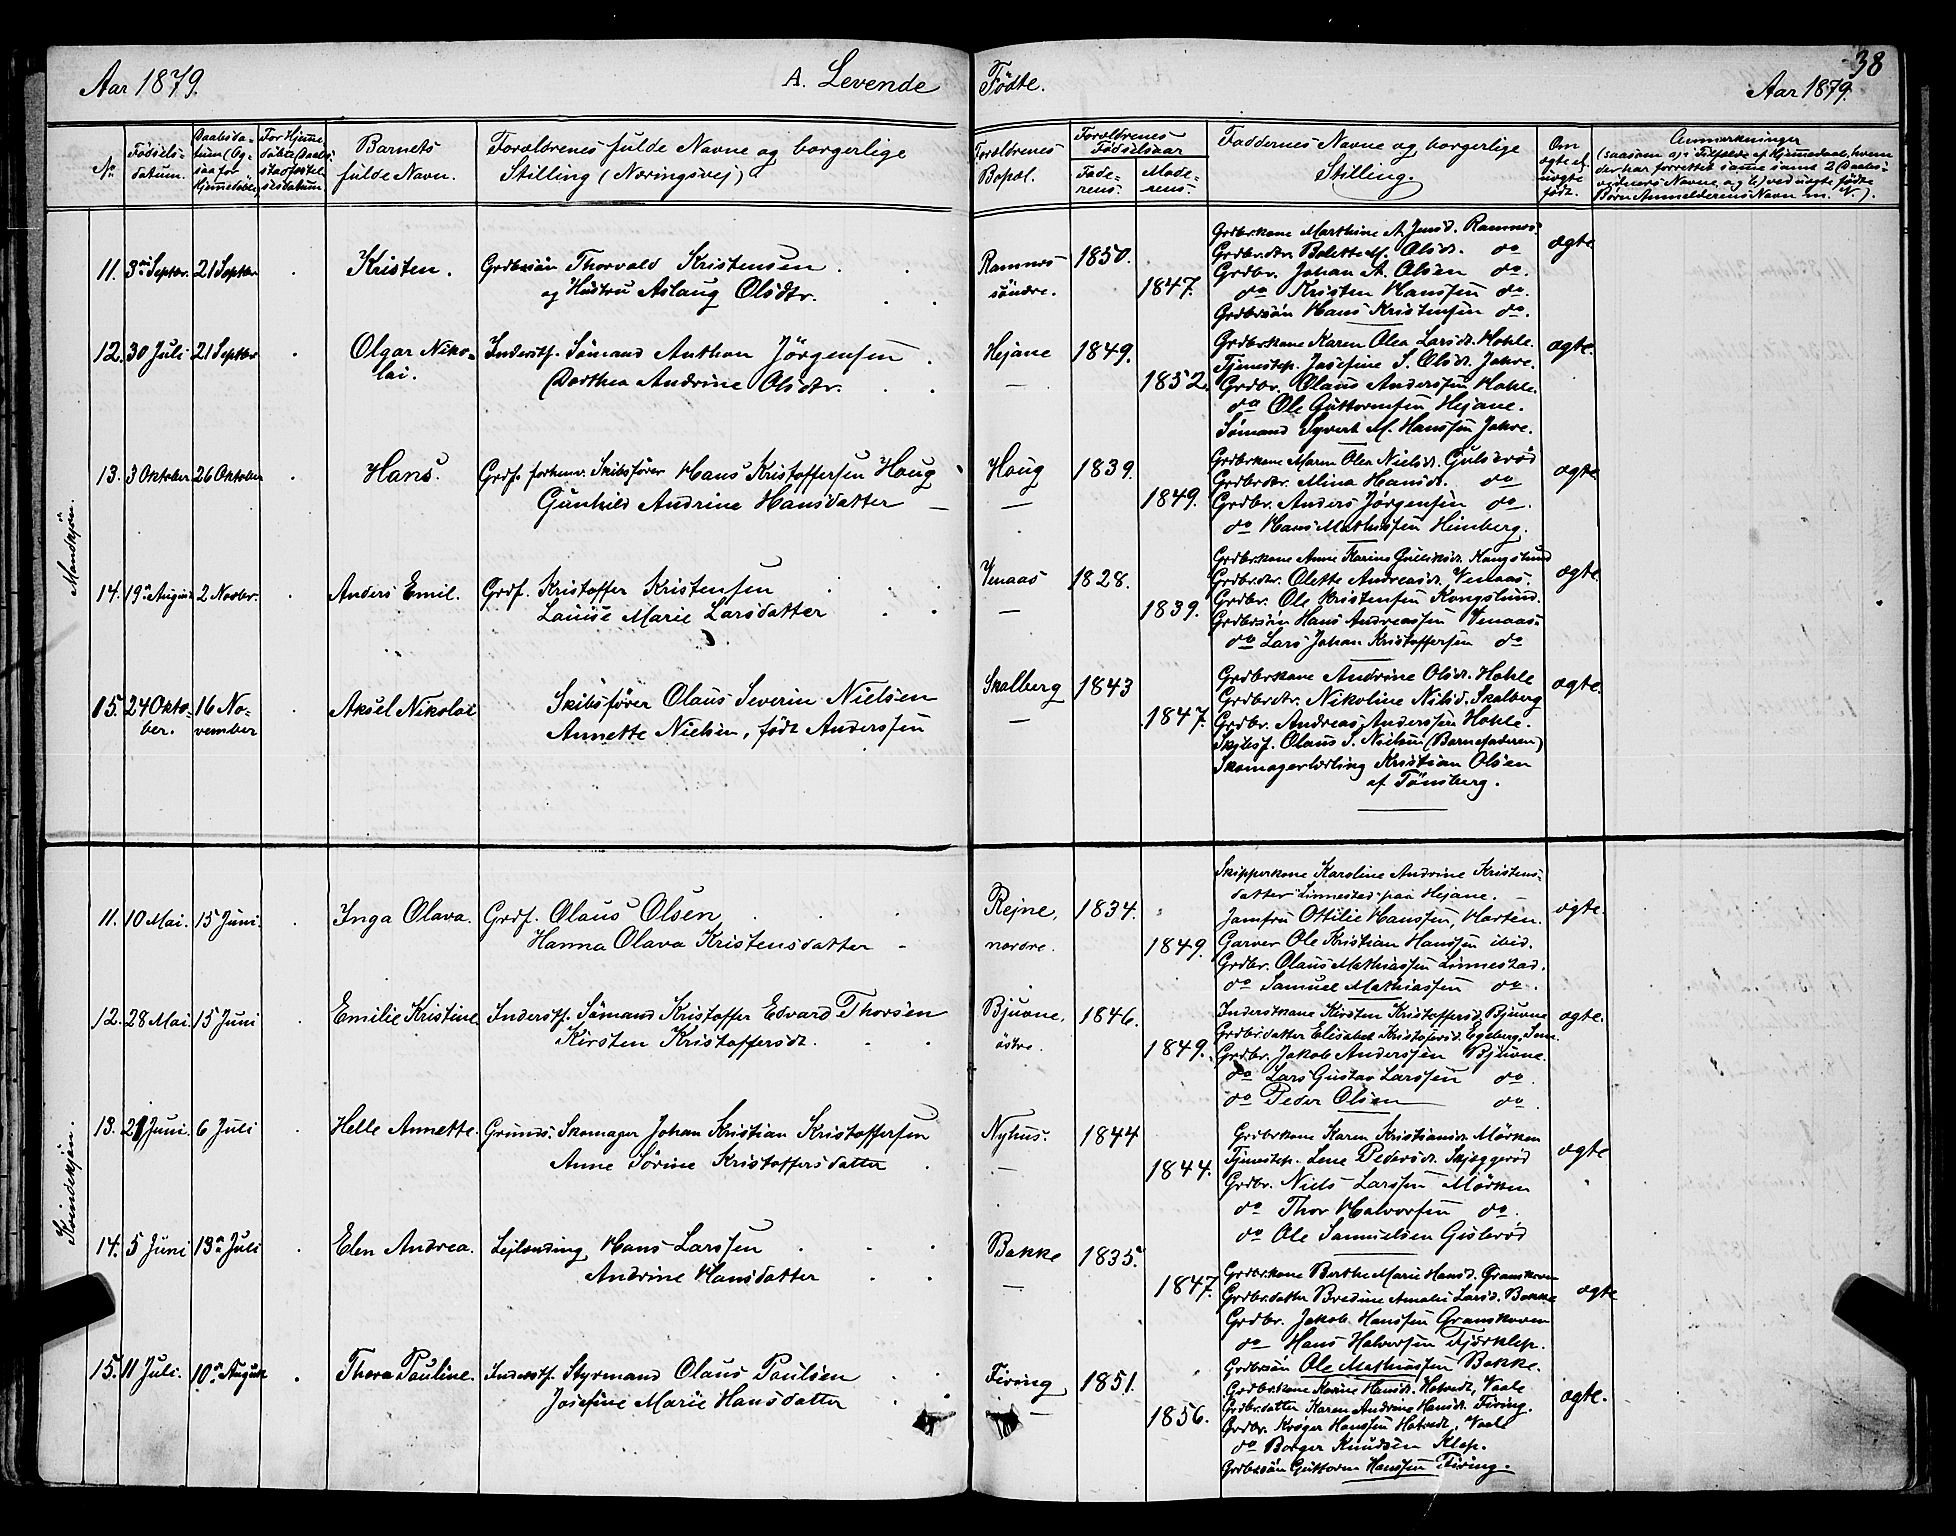 38
Aar 1879. A. Levende Fødte. Aar 1879.
No Fødsels-datum. Daabsda-tum (Og-saa for Hjemmedøbte) For Hjemme-døbte Daabs-stadfæstel-sesdatum. Barnets fulde Navn. Forældrenes fulde Navne og borgerlige Stilling (Næringsvej) Forældrenes Bopæl. Forældrenes Fødselsaar Fade-rens. Mode-rens. Faddernes Navne og borgerlige Stilling. Om ægte el. uægte født. Anmærkninger
Mandkjøn.
11. 3die Septbr. 21 Septbr Kristen. Grdbrsøn Thorvald Kristensen
og Hustru Aslaug Olsdtr.
Ramnes søndre. 1850. 1847. ægte
Grdbrkone Marthine A. Jensd. Ramnes
Grdbr.dtr. Bolette M. Olsdt. do
Grdbr. Johan A. Olsen do.
do Kristen Hanssen do.
Grdbrsøn Hans Kristensen do.
12. 30 Juli 21 Septbr Olgar Niko-lai. Inderstf. Sømand Anthon Jørgensen
Dorthea Andrine Olsdtr.
Hejane — 1849. 1852. ægte.
Grdbrkone Karen Olea Larsdt. Hohle.
Tjenestep. Josefine S. Olsdt. Jahre.
Grdbr. Olaus Anderssen Hohle.
do Ole Guttormsen Hejane.
Sømand Syvert M. Hanssen Jahre.
13. 3 Oktober 26 Oktober Hans. Grdf. forhenv. Skibsfører Hans Kristoffersen Houg
Gunhild Andrine Hansdatter —
Houg — 1839. 1849. ægte
Grdbrkone Maren Olea Nielsdt. Gulserød
Grdbrdtr. Alina Hansdt. do
Grdbr. Anders Jørgensen do.
do Hans Mathissen Himberg.
14. 19de August 2 Novbr. Anders Emil. Grdf. Kristoffer Kristensen
Louise Marie Larsdatter
Venaas — 1828. 1839. ægte.
Grdbrkone Anne Karine Gulliksdt. Kongslund
Grdbrdtr. Olette Andreasdt. Venaas.
Grdbr. Ole Kristensen Kongslund.
Grdbrsøn Hans Andreassen Venaas.
do Lars Johan Kristoffersen do
15. 24 Okto-ber. 16 No-vember Aksel Nikolai Skibsfører Olaus Severin Nielsen
Annette Nielsen, født Anderssen
Skalberg — 1843 1847. ægte.
Grdbrkone Andrine Olsdt. Hohle
Grdbrdtr. Nikoline Nilsd. Skalberg
Grdbr. Andreas Anderssen Hohle.
Skibsf. Olaus S. Nielsen (Barnefaderen)
Skomagerlærling Kristian Olsen
af Tønsberg.
Kvindekjøn.
11. 10 Mai. 15 Juni. Inga Olava. Grdf. Olaus Olsen
Hanna Olava Kristensdatter
Rejne, nordre. 1834. 1849. ægte.
Skipperkone Karoline Andrine Kristens-
datter Linnestad paa Hejane.
Jomfru Ottilie Hanssen, Horten.
Garver Ole Kristian Hanssen ibid.
Grdbr. Olaus Mathiassen Linnestad.
do Samuel Mathiassen do
12. 28 Mai 15 Juni Emilie Kristine Inderstf. Sømand Kristoffer Edvard Thorsen
Kirsten Kristoffersdt.
Bjuvne, østre. 1846. 1849. ægte.
Inderstkone Kirsten Kristoffersd. Bjuvne
Grdbrdatter Elisabet Kristofersd. Egeberg, Sem
Grdbr. Jakob Anderssen Bjuvne.
do Lars Gustav Larssen do.
do Peder Olsen do.
13. 21 Juni. 6 Juli Helle Annette. Grunds. Skomager Johan Kristian Kristoffersen
Anne Sørine Kristoffersdatter
Nyhus. — 1844 1844. ægte
Grdbrkone Karen Kristiansdt. Mørken
Tjenestep. Lene Pedersdt. Skjeggerød
Grdbr. Niels Larssen Mørken
do Thor Halvorsen do.
do Ole Samuelsen Gislerød
14. 5 Juni 13de Juli Elen Andrea. Lejlænding Hans Larssen
Andrine Hansdatter
Bakke — 1835. 1847. ægte
Grdbrkone Berthe Marie Hansd. Granskoven
Grdbrdatter Bredine Amalie Larsd. Bakke
Grdbr. Jakob Hanssen Granskoven
do Hans Halvorsen Fjærklep.
Grdbrsøn Ole Mathiassen Bakke.
15. 11 Juli. 10de August Thora Pauline. Inderstf. Styrmand Olaus Paulsen
Josefine Marie Hansdatter
Firing — 1851. 1856. ægte.
Grdbrkone Karine Hansdt. Hotvedt, Vaale
Grdbrdatter Karen Andrine Hansdt. Firing.
Grdbr. Krøger Hanssen Hotvedt, Vaale
do Borger Knudsen Klep.
Grdbrsøn Guttorm Hanssen Firing.